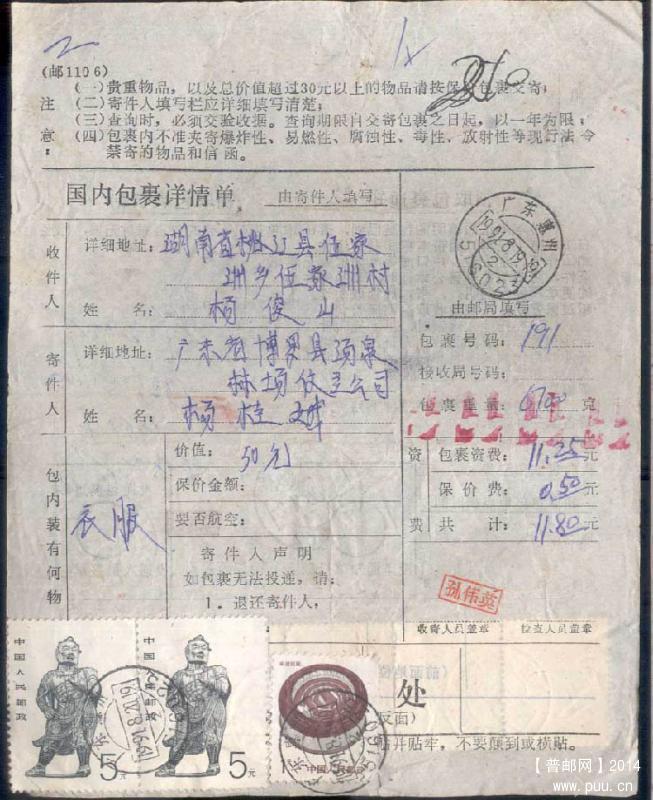 (邮1106)
注意：
(一)贵重物品，以及总价值超过30元以上的物品请按保价包裹交寄；
(二)寄件人填写栏应详细填写清楚；
(三)查询时，必须交验收据。查询期限自交寄包裹之日起，以一年为限；
(四)包裹内不准夹寄爆炸性、易燃性、腐蚀性、毒性、放射性等现行法令
禁寄的物品和信函。
国内包裹详情单
由寄件人填写
收件人
详细地址：湖南省桃江县伍家
洲乡伍家洲村
姓 名：杨俊山
寄件人
详细地址：广东省博罗县汤泉
林场
公司
姓 名：杨桂
包内装有何物
衣服
价值：50元
保价金额：
要否航空：
寄件人声明
如包裹无法投递，请：
1．退还寄件人，
广东惠州
516023
由邮局填写
包裹号码：191
接收局号码：
包裹重量：6700 克
资费
包裹资费：11.25元
保价费：0.50元
共 计：11.80元
孙伟英
收寄人员签章
检查人员盖章
中国人民邮政
5元
中国人民邮政
5元
中国人民邮政
处
反面)
贴并贴牢，不要颠到或横贴。
【普邮网】2014
www.puu.cn